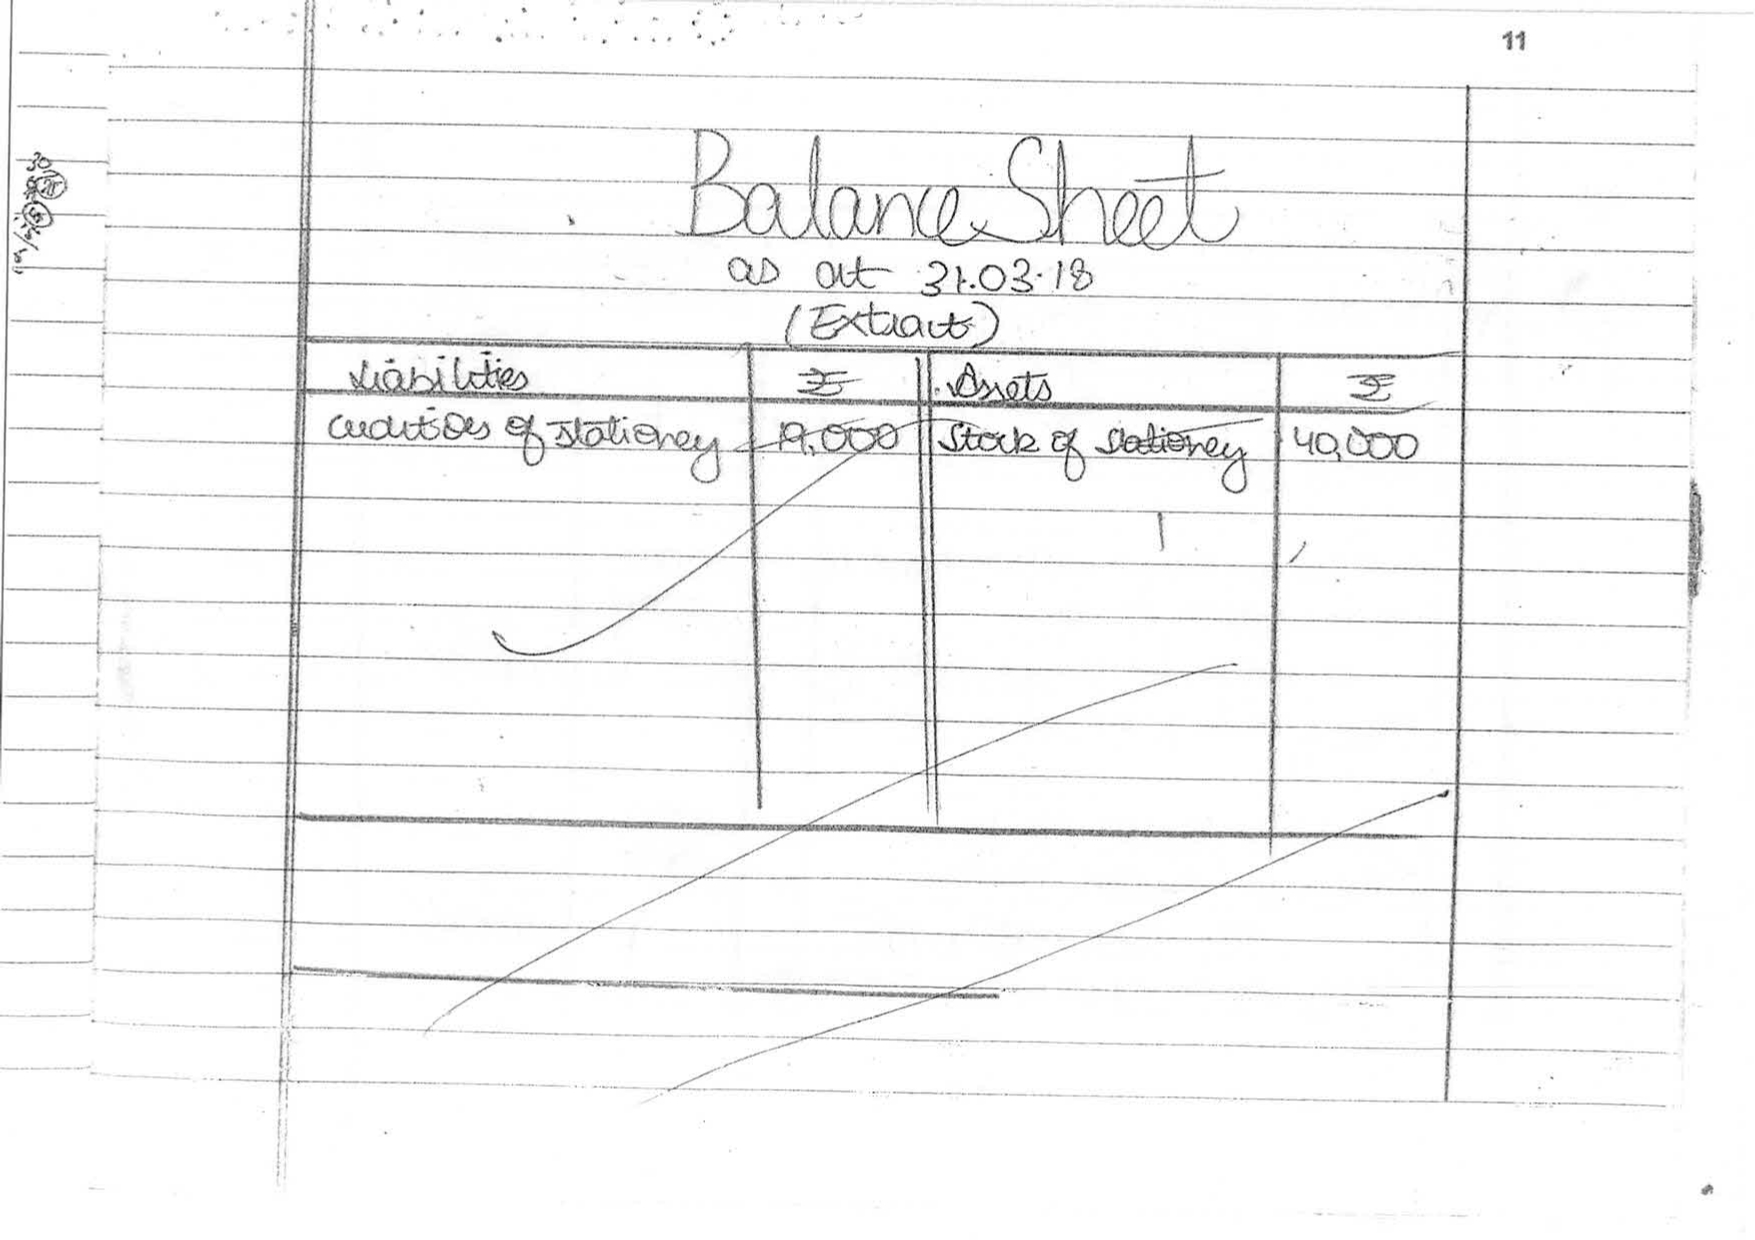 11
Balance Sheet
as at 31.03.18
(Extract)
Liabilities ₹ Assets ₹
creditors of stationey 19,000 Stock of stationey 40,000